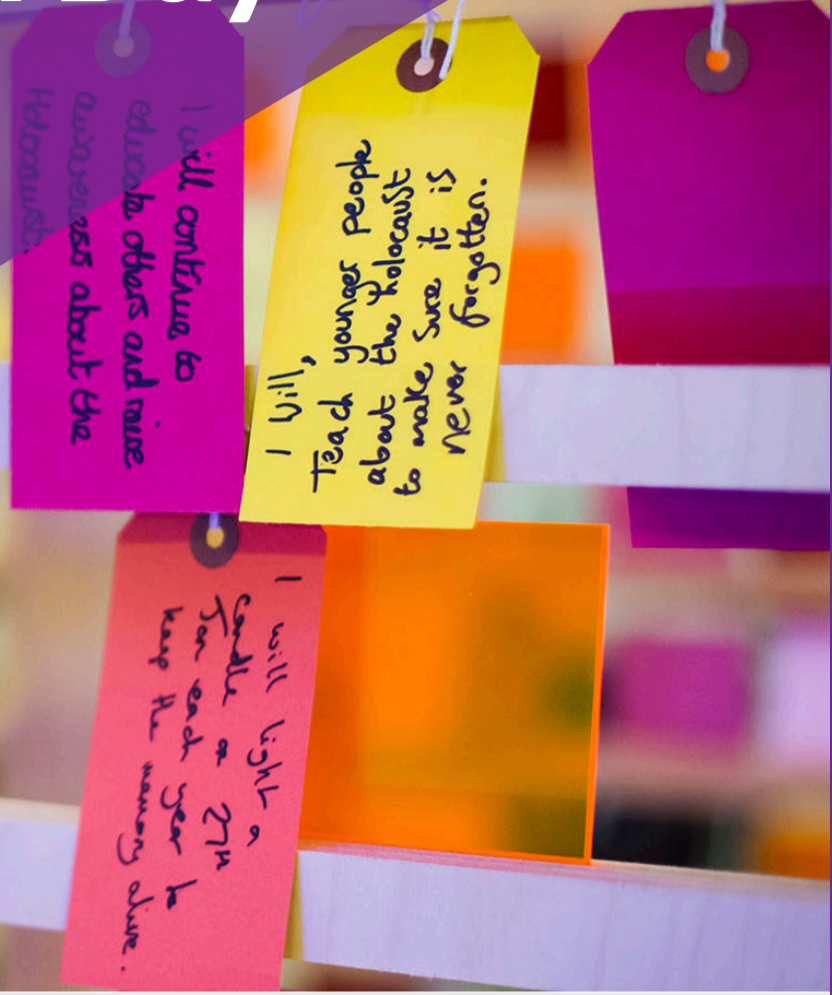 Day
I will continue to
educate others and raise
awareness about the
Holocaust.
I Will,
Teach younger people
about the holocaust
to make sure it is
never forgotten.
I will light a
candle on 27th
Jan each year to
keep the memory alive.